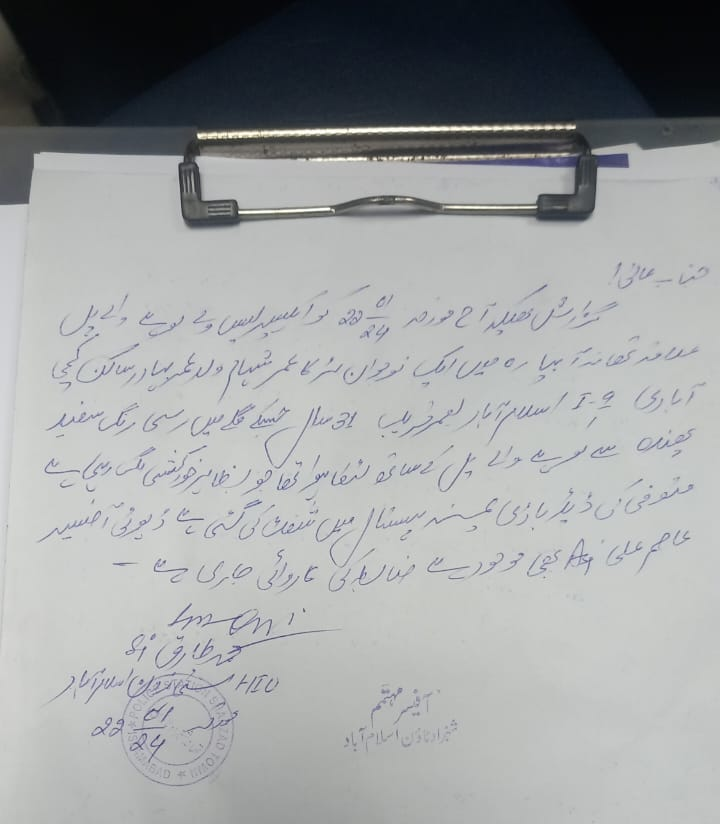 جناب عالی!
گزارش ہیکہ آج مورخہ 22 01/24 کو ایکسپریس وے لوہے والے پل
علاقہ تھانہ آبپارہ میں ایک نوجوان لڑکا عمر شہام ولد عمر بہادر ساکن کچی
آبادی I-9 اسلام آباد بعمر قریب 31 سال جسکے گلے میں رسی رنگ سفید
پھندہ سے لوہے والے پل کے ساتھ لٹکا ہوا تھا جو بظاہر خودکشی لگ رہی ہے
متوفی کی ڈیڈ باڈی پمز ہسپتال میں شفٹ کی گئی ہے ڈیوٹی آفیسر
عاصم علی ASI بھی موجود ہے ضابطہ کی کاروائی جاری ہے -
طارق SI
HIU شہزاد ٹاؤن اسلام آباد
مورخہ 22 01/24
POLICE STATION SHAHZAD TOWN ISLAMABAD
آفیسر مہتمم
شہزاد ٹاؤن اسلام آباد